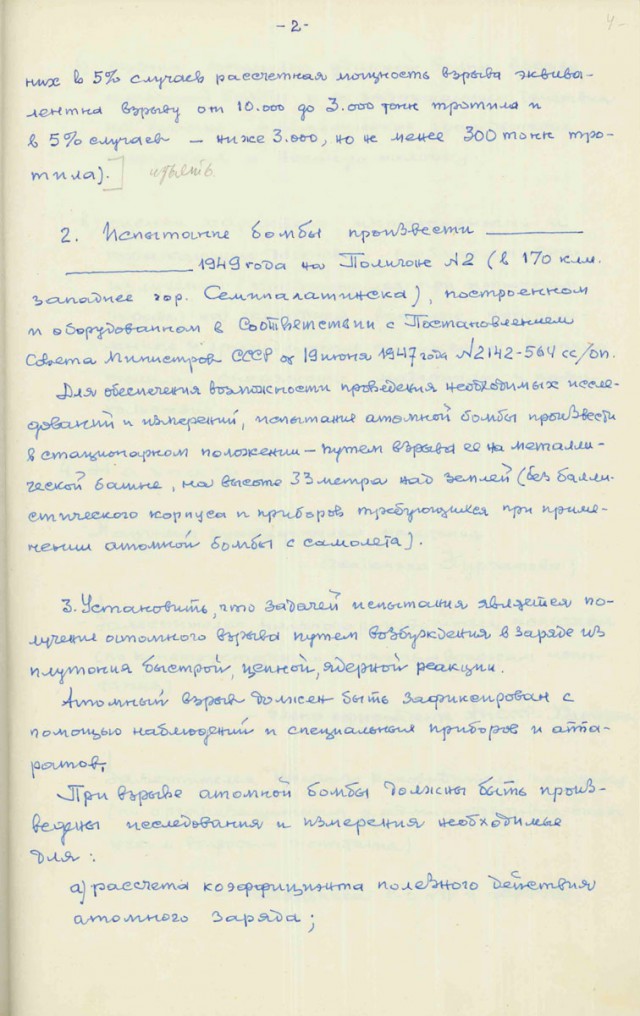 -2-
4-
них в 5% случаев рассчетная мощность взрыва эквива-
лентна взрыву от 10.000 до 3.000 тонн тротила и
в 5% случаев — ниже 3.000, но не менее 300 тонн тро-
тила).]
2. Испытание бомбы произвести ________
________ 1949 года на Полигоне N2 (в 170 клм.
западнее гор. Семипалатинска), построенном
и оборудованном в Соответствии с Постановлением
Совета Министров СССР от 19 июня 1947 года N2142-564 сс/оп.
Для обеспечения возможности проведения необходимых иссле-
дований и измерений, испытание атомной бомбы произвести
в стационарном положении — путем взрыва ее на металли-
ческой башне, на высоте 33 метра над землей (без балли-
стического корпуса и приборов требующихся при приме-
нении атомной бомбы с самолета).
3. Установить, что задачей испытания является по-
лучение атомного взрыва путем возбуждения в заряде из
плутония быстрой, цепной, ядерной реакции.
Атомный взрыв должен быть зафиксирован с
помощью наблюдений и специальных приборов и аппа-
ратов.
При взрыве атомной бомбы должны быть произ-
ведены исследования и измерения необходимые
для:
а) рассчета коэффициента полезного действия
атомного заряда;